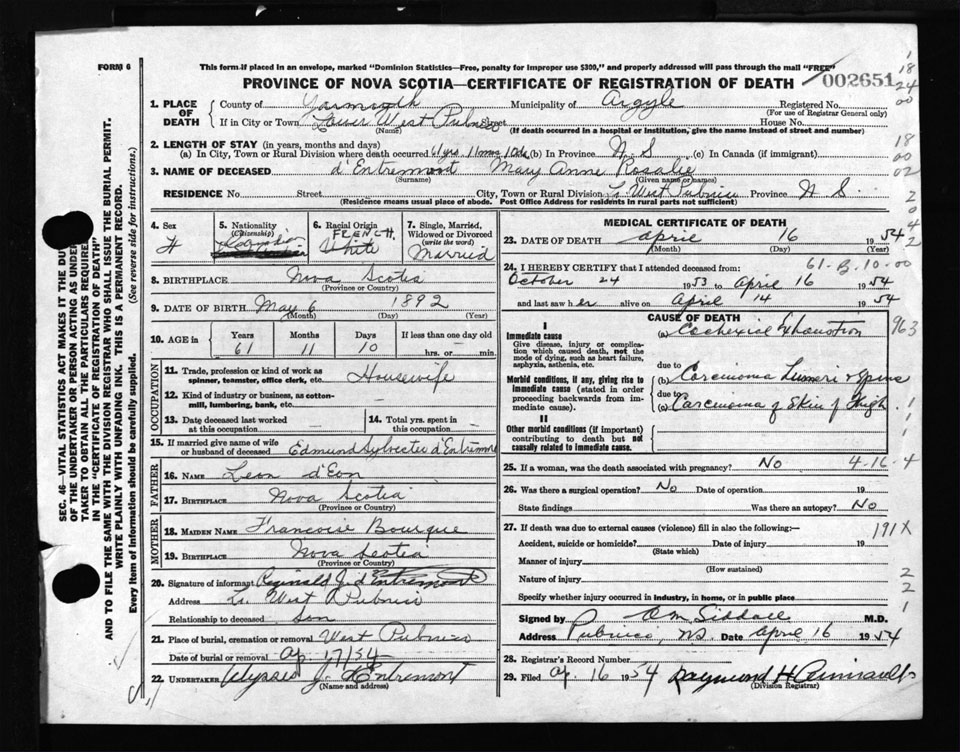 FORM 6
This form if placed in an envelope, marked "Dominion Statistics—Free, penalty for improper use $300," and properly addressed will pass through the mail "FREE"
PROVINCE OF NOVA SCOTIA—CERTIFICATE OF REGISTRATION OF DEATH
002651
1. PLACE OF DEATH County of Yarmouth Municipality of Argyle Registered No.
(For use of Registrar General only)
If in City or Town Lower West Pubnico Street House No.
(Name) (If death occurred in a hospital or institution, give the name instead of street and number)
2. LENGTH OF STAY (in years, months and days)
(a) In City, Town or Rural Division where death occurred 61 yrs 11 mos 10 ds (b) In Province N. S (c) In Canada (if immigrant)
3. NAME OF DECEASED d'Entremont Mary Anne Rosalie
(Surname) (Given name or names)
RESIDENCE No. Street City, Town or Rural Division L. West Pubnico Province N S.
(Residence means usual place of abode. Post Office Address for residents in rural parts not sufficient)
4. Sex
F
5. Nationality
(Citizenship)
Canadian
6. Racial Origin
FRENCH.
White
7. Single, Married, Widowed or Divorced
(write the word)
Married
8. BIRTHPLACE Nova Scotia
(Province or Country)
9. DATE OF BIRTH May 6 1892
(Month) (Day) (Year)
10. AGE in Years Months Days If less than one day old
61 11 10 hrs. or min.
OCCUPATION
11. Trade, profession or kind of work as spinner, teamster, office clerk, etc. Housewife
12. Kind of industry or business, as cotton-mill, lumbering, bank, etc.
13. Date deceased last worked at this occupation
14. Total yrs. spent in this occupation
15. If married give name of wife or husband of deceased Edmund Sylvester d'Entremont
FATHER
16. NAME Leon d'Eon
17. BIRTHPLACE Nova Scotia
(Province or Country)
MOTHER
18. MAIDEN NAME Francoise Bourque
19. BIRTHPLACE Nova Scotia
(Province or Country)
20. Signature of informant Reginald J. d'Entremont
Address Lr. West Pubnico
Relationship to deceased Son
21. Place of burial, cremation or removal West Pubnico
Date of burial or removal Ap. 17/54
22. UNDERTAKER Ulysses J. d'Entremont
(Name and address)
MEDICAL CERTIFICATE OF DEATH
23. DATE OF DEATH April 16 1954
(Month) (Day) (Year)
61-B-10-00
24. I HEREBY CERTIFY that I attended deceased from:
October 24 1953 to April 16 1954
and last saw her alive on April 14 1954
CAUSE OF DEATH
963
I
Immediate cause
Give disease, injury or complication which caused death, not the mode of dying, such as heart failure, asphyxia, asthenia, etc.
(a) Cachexial Exhaustion
due to
Morbid conditions, if any, giving rise to immediate cause (stated in order proceeding backwards from immediate cause).
(b) Carcinoma Lumbar Spine
due to
(c) Carcinoma of Skin of Thigh
II
Other morbid conditions (if important) contributing to death but not causally related to immediate cause.
25. If a woman, was the death associated with pregnancy? No 4-16-4
26. Was there a surgical operation? No Date of operation 19
State findings Was there an autopsy? No
27. If death was due to external causes (violence) fill in also the following:— 191X
Accident, suicide or homicide? Date of injury 19
(State which)
Manner of injury
(How sustained)
Nature of injury
Specify whether injury occurred in industry, in home, or in public place
Signed by Siddall M.D.
Address Pubnico, NS. Date April 16 1954
28. Registrar's Record Number
29. Filed Ap. 16 1954 Raymond H Amirault
(Division Registrar)
SEC. 46—VITAL STATISTICS ACT MAKES IT THE DUTY
OF THE UNDERTAKER OR PERSON ACTING AS UNDER-
TAKER TO OBTAIN ALL THE PARTICULARS REQUIRED
IN THE "CERTIFICATE OF REGISTRATION OF DEATH"
AND TO FILE THE SAME WITH THE DIVISION REGISTRAR WHO SHALL ISSUE THE BURIAL PERMIT.
WRITE PLAINLY WITH UNFADING INK. THIS IS A PERMANENT RECORD.
Every item of information should be carefully supplied. (See reverse side for instructions.)
1
18
24
00
18
00
02
2
0
4
2
1
1
1
2
2
1